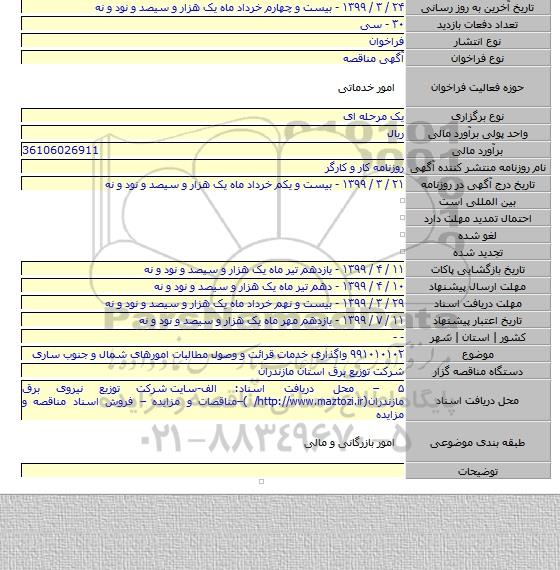 تاریخ آخرین به روز رسانی ۲۴ / ۳ / ۱۳۹۹ - بیست و چهارم خرداد ماه یک هزار و سیصد و نود و نه
تعداد دفعات بازدید ۳۰ - سی
نوع انتشار فراخوان
نوع فراخوان آگهی مناقصه
حوزه فعالیت فراخوان امور خدماتی
نوع برگزاری یک مرحله ای
واحد پولی برآورد مالی ریال
برآورد مالی 36106026911
نام روزنامه منتشر کننده آگهی روزنامه کار و کارگر
تاریخ درج آگهی در روزنامه ۲۱ / ۳ / ۱۳۹۹ - بیست و یکم خرداد ماه یک هزار و سیصد و نود و نه
بین المللی است
احتمال تمدید مهلت دارد
لغو شده
تجدید شده
تاریخ بازگشایی پاکات ۱۱ / ۴ / ۱۳۹۹ - یازدهم تیر ماه یک هزار و سیصد و نود و نه
مهلت ارسال پیشنهاد ۱۰ / ۴ / ۱۳۹۹ - دهم تیر ماه یک هزار و سیصد و نود و نه
مهلت دریافت اسناد ۲۹ / ۳ / ۱۳۹۹ - بیست و نهم خرداد ماه یک هزار و سیصد و نود و نه
تاریخ اعتبار پیشنهاد ۱۱ / ۷ / ۱۳۹۹ - یازدهم مهر ماه یک هزار و سیصد و نود و نه
کشور | استان | شهر - -
موضوع ۹۹۱۰۱۰۱۰۲ واگذاری خدمات قرائت و وصول مطالبات امورهای شمال و جنوب ساری
دستگاه مناقصه گزار شرکت توزیع برق استان مازندران
محل دریافت اسناد ۵ – محل دریافت اسناد: الف-سایت شرکت توزیع نیروی برق
مازندران(http://www.maztozi.ir/ )–مناقصات و مزایده – فروش اسناد مناقصه و
مزایده
طبقه بندی موضوعی امور بازرگانی و مالی
توضیحات
ParsNamadData
۰۲۱-۸۸۳۴۹۶۷۰-۵